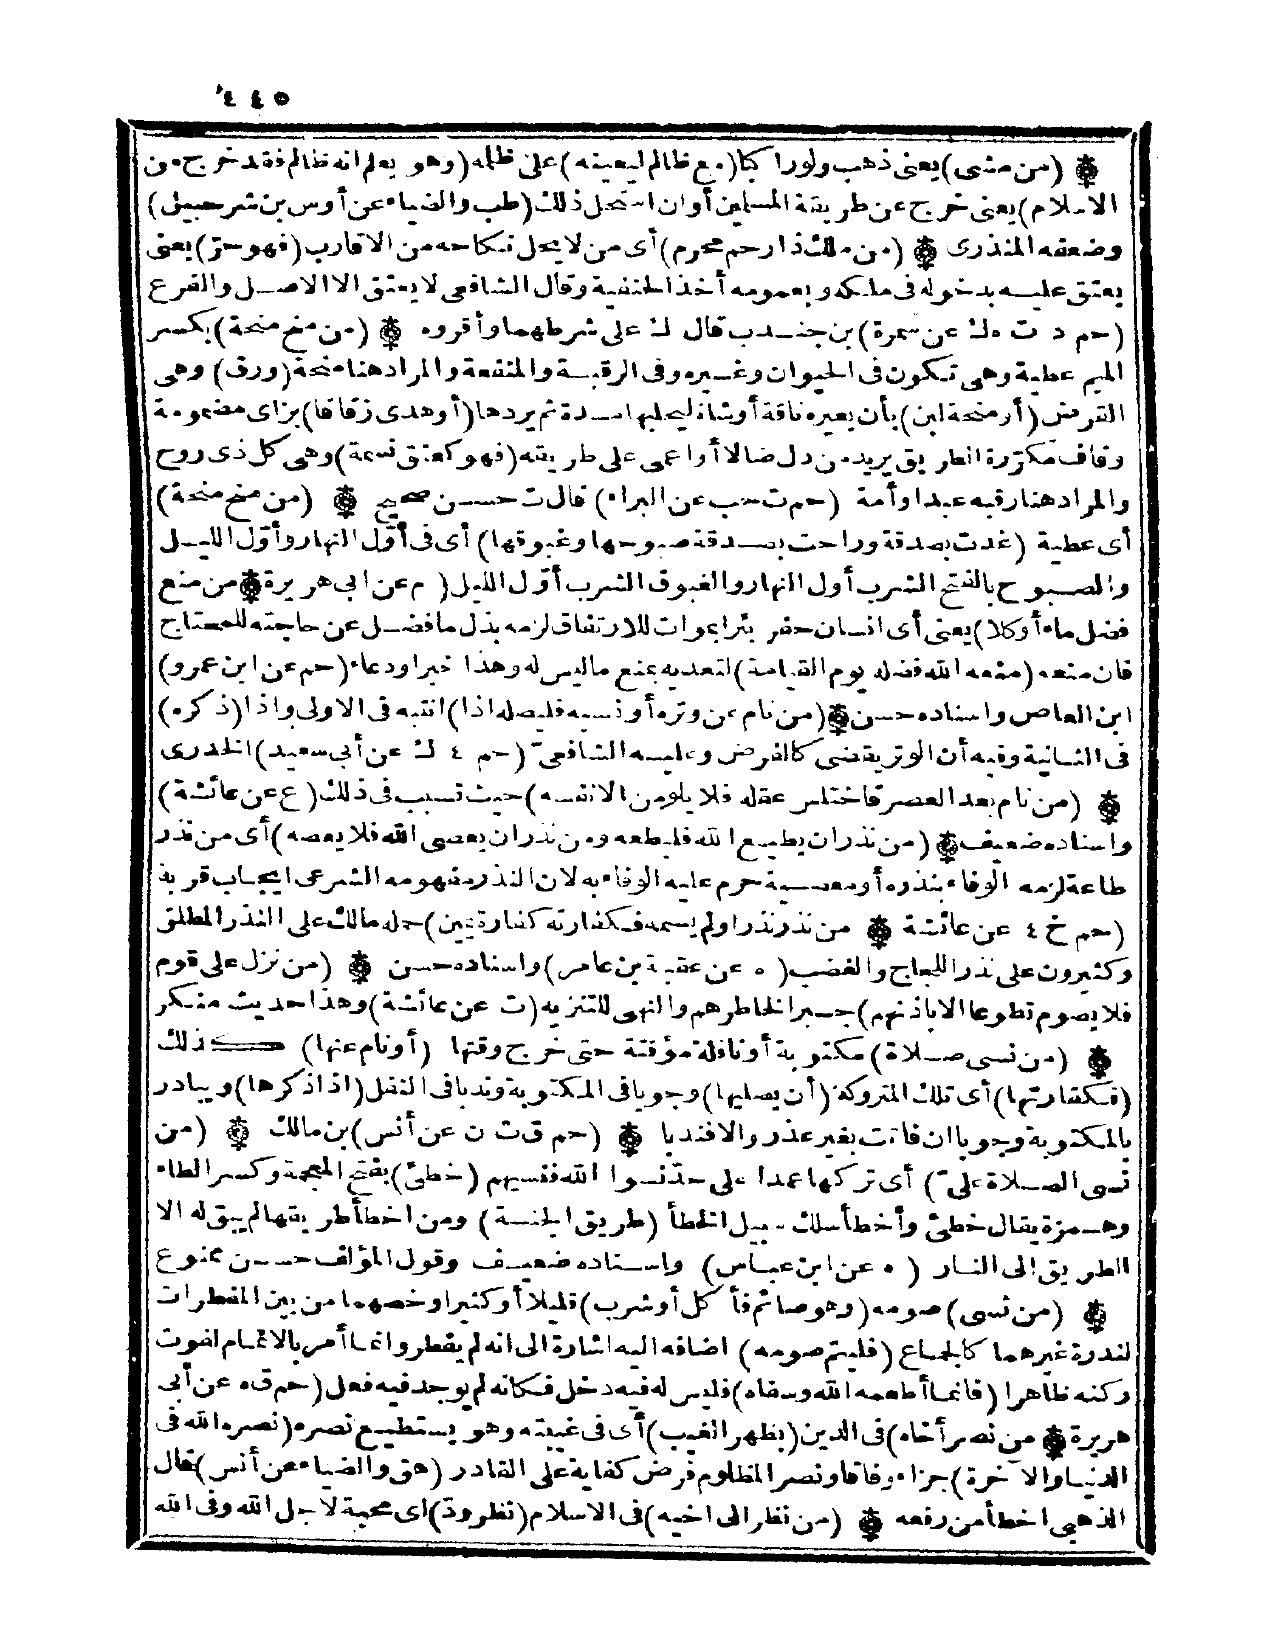 ٤٤٥
(من مشى) يعنى ذهب ولو راكبا (مع ظالم ليعينه) على ظلمه (وهو يعلم انه ظالم فقد خرج من
الاسلام) يعنى خرج عن طريقة المسلمين أو ان استحل ذلك (طب والضياء عن أوس بن شرحبيل)
وضعفه المنذرى (من ملك ذا رحم محرم) أى من لا يحل نكاحه من الاقارب (فهو حر) يعنى
يعتق عليه بدخوله فى ملكه وبعمومه أخذ الحنفية وقال الشافعى لا يعتق الا الاصل والفرع
(حم د ت ه ك عن سمرة) بن جندب قال ك على شرطهما وأقروه (من منح منحة) بكسر
الميم عطية وهى تكون فى الحيوان وغيره وفى الرقبة والمنفعة والمراد هنا منحة (ورق) وهى
القرض (أو منحة لبن) بأن يعيره ناقة أو شاة ليحلبها مدة ثم يردها (أو هدى زقاقا) بزاى مضمومة
وقاف مكررة الطريق يريد من دل ضالا أو اعمى على طريقه (فهو كعتق نسمة) وهى كل ذى روح
والمراد هنا رقبه عبد او أمة (حم ت حب عن البراء) قال ت حسن صحيح (من منح منحة)
أى عطية (غدت بصدقة وراحت بصدقة صبوحها وغبوقها) أى فى أول النهار وأول الليل
والصبوح بالفتح الشرب أول النهار والغبوق الشرب أول الليل (م عن ابى هريرة من منع
فضل ماء أو كلا) يعنى أى انسان حفر بئرا بموات للارتفاق لزمه بذل ما فضل عن حاجته للمحتاج
فان منعه (منعه الله فضله يوم القيامة) لتعديه بمنع ما ليس له وهذا خبر او دعاء (حم عن ابن عمرو)
ابن العاص واسناده حسن (من نام عن وتره أو نسيه فليصله اذا) انتبه فى الاولى واذا (ذكره)
فى الثانية وفيه أن الوتر يقضى كالفرض وعليه الشافعى (حم ٤ ك عن أبى سعيد) الخدرى
(من نام بعد العصر فاختلس عقله فلا يلومن الا نفسه) حيث تسبب فى ذلك (ع عن عائشة)
واسناده ضعيف (من نذر ان يطيع الله فليطعه ومن نذر ان يعصى الله فلا يعصه) أى من نذر
طاعة لزمه الوفاء بنذره أو معصية حرم عليه الوفاء به لان النذر مفهومه الشرعى ايجاب قربة
(حم خ ٤ عن عائشة من نذر نذرا ولم يسمه فكفارته كفارة يمين) حمله مالك على النذر المطلق
وكثيرون على نذر اللجاج والغضب (ه عن عقبة بن عامر) واسناده حسن (من نزل على قوم
فلا يصوم تطوعا الا باذنهم) جبر الخاطرهم والنهى للتنزيه (ت عن عائشة) وهذا حديث منكر
(من نسى صلاة) مكتوبة أو نافلة مؤقتة حتى خرج وقتها (أو نام عنها) كذلك
(فكفارتها) أى تلك المتروكة (أن يصليها) وجوبا فى المكتوبة وندبا فى النفل (اذا ذكرها) ويبادر
بالمكتوبة وجوبا ان فاتت بغير عذر والا فندبا (حم ق ت ن عن أنس) بن مالك (من
نسى الصلاة على) أى تركها عمدا على حد نسوا الله فنسيهم (خطئ) بفتح المعجمة وكسر الطاء
وهمزة يقال خطئ وأخطأ سلك سبيل الخطأ (طريق الجنة) ومن اخطأ طريقها لم يبق له الا
الطريق الى النار (ه عن ابن عباس) واسناده ضعيف وقول المؤلف حسن ممنوع
(من نسى) صومه (وهو صائم فأكل أو شرب) قليلا أو كثيرا وخصهما من بين المفطرات
لندرة غيرهما كالجماع (فليتم صومه) اضافه اليه اشارة الى انه لم يفطر وانما أمر بالاتمام لفوت
ركنه ظاهرا (فانما أطعمه الله وسقاه) فليس له فيه دخل فكانه لم يوجد فيه فعل (حم ق ه عن أبى
هريرة من نصر أخاه) فى الدين (بظهر الغيب) أى فى غيبته وهو يستطيع نصره (نصره الله فى
الدنيا والآخرة) جزاء وفاقا ونصر المظلوم فرض كفاية على القادر (هق والضياء عن أنس) قال
الذهبى اخطأ من رفعه (من نظر الى اخيه) فى الاسلام (نظر ود) اى محبة لاجل الله وفى الله